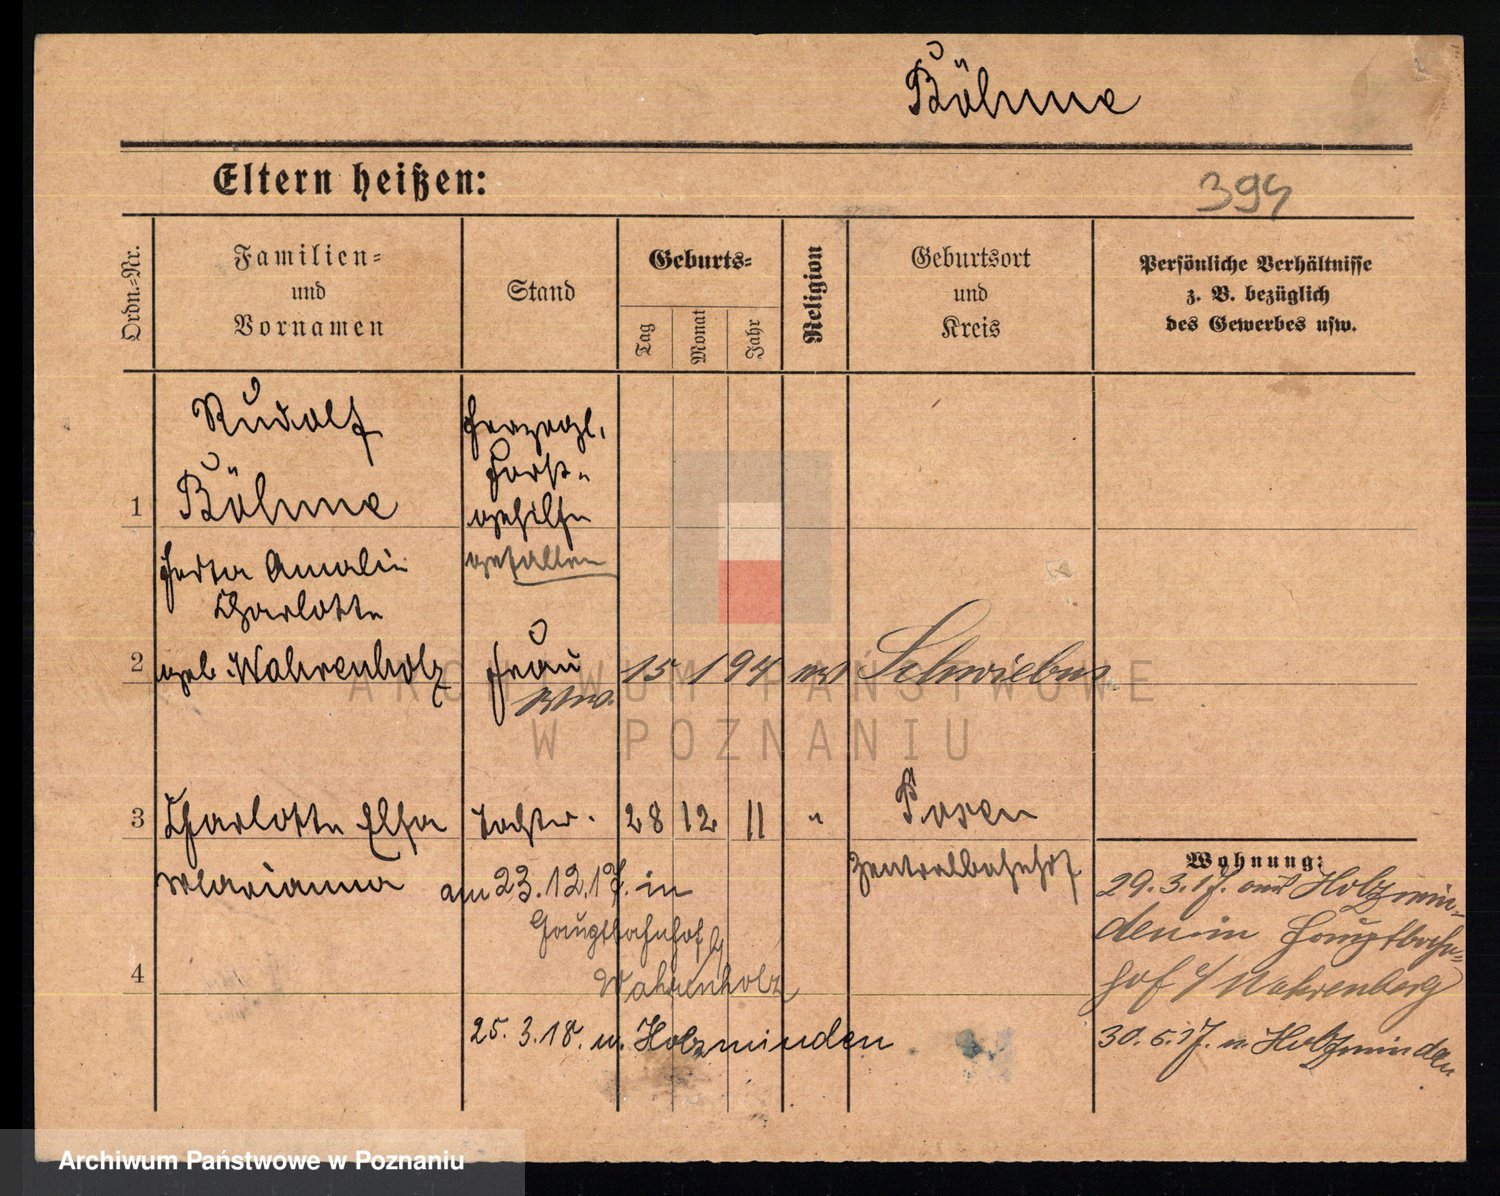 Böhme
Eltern heißen:
394
Ordn.-Nr.
Familien-
und
Vornamen
Stand
Geburts-
Tag
Monat
Jahr
Religion
Geburtsort
und
Kreis
Persönliche Verhältnisse
z. B. bezüglich
des Gewerbes usw.
1
Rudolf
Böhme
Herzogl.
Forst-
gehilfe
gefallen
Herta Amalie
Charlotte
2
geb. Wahrenholz
Frau
Wwe.
15 1 94 ev Schwiebus
3
Charlotte Elsa
Tochter.
28 12 11 " Posen
Marianna
Zentralbahnhof
Wohnung:
am 23.12.17. in
Hauptbahnhof b/
Wahrenholz
25.3.18. n. Holzminden
29.3.17. aus Holzmin-
den in Hauptbahn-
hof b/ Wahrenberg
30.5.17. n. Holzminden
4
ARCHIWUM PAŃSTWOWE
W POZNANIU
Archiwum Państwowe w Poznaniu